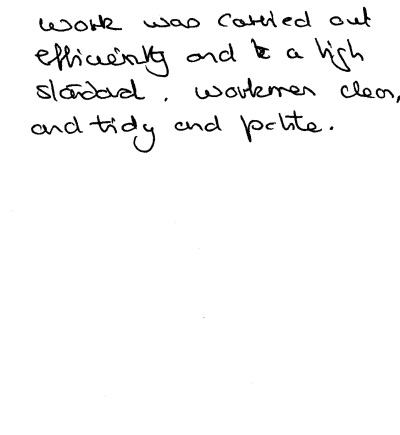 Work was carried out
efficiently and to a high
standard. Workmen clean,
and tidy and polite.